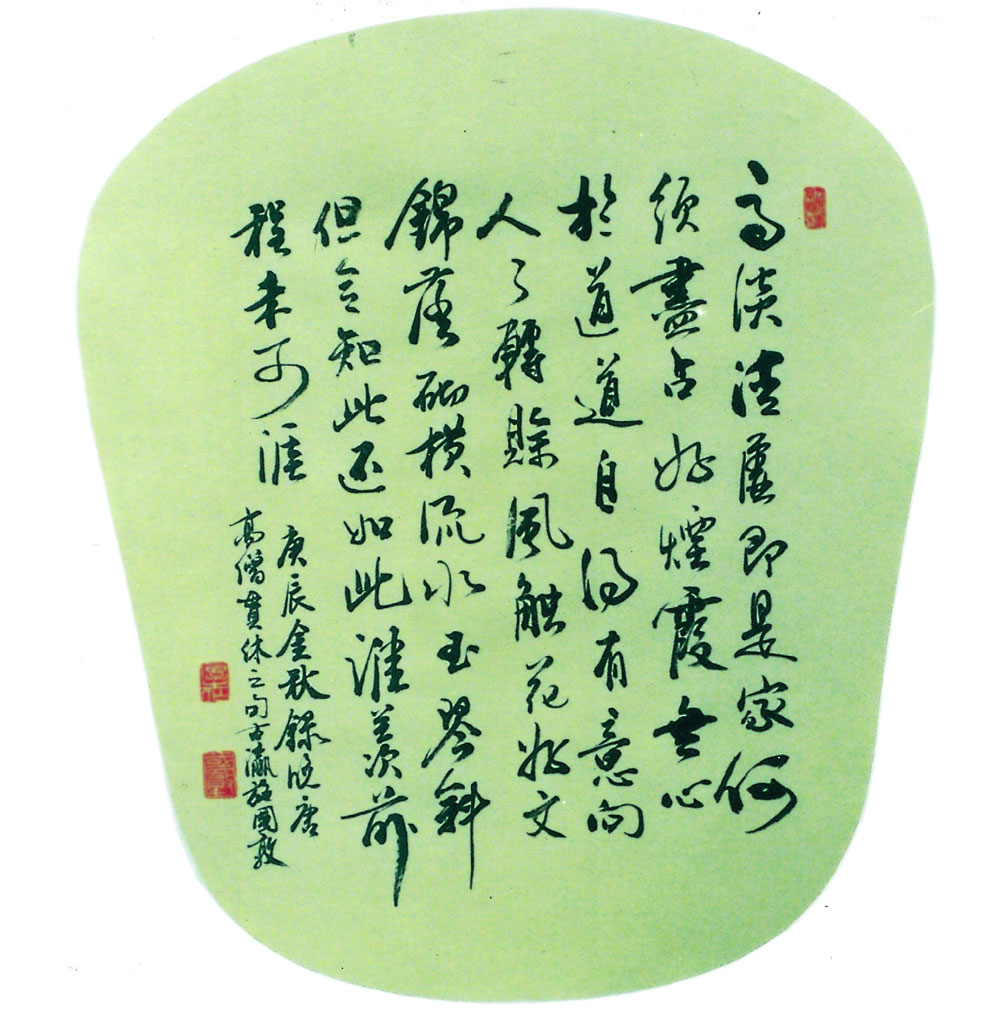 高淡清虛即是家何
須盡占好煙霞無心
於道道自得有意向
人々轉賒風触花好文
錦落砌橫流水玉琴斜
但令知此还如此誰羨前
程未可涯
庚辰金秋錄晚唐
高僧貫休之句古瀛施國敦